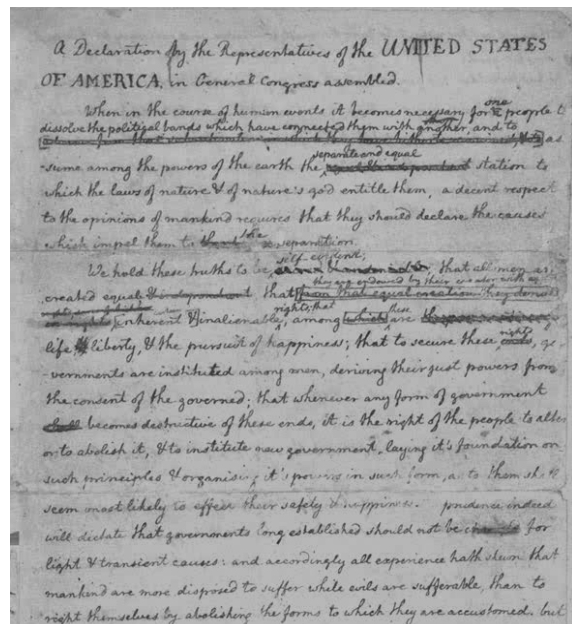 A Declaration by the Representatives of the UNITED STATES
OF AMERICA, in General Congress assembled.
When in the course of human events it becomes necessary for one people to
dissolve the political bands which have connected them with another, and to
as
-sume among the powers of the earth the separate and equal station to
which the laws of nature & of nature's god entitle them, a decent respect
to the opinions of mankind requires that they should declare the causes
which impel them to the separation.
We hold these truths to be self-evident; that all men are
created equal that they are endowed by their creator with
from that equal creation they
rights; that
inherent & inalienable, among which these are
life liberty, & the pursuit of happiness; that to secure these rights, go
-vernments are instituted among men, deriving their just powers from
the consent of the governed; that whenever any form of government
becomes destructive of these ends, it is the right of the people to alter
or to abolish it, & to institute new government, laying it's foundation on
such principles & organising it's powers in such form, as to them shall
seem most likely to effect their safety & happiness. prudence indeed
will dictate that governments long established should not be for
light & transient causes: and accordingly all experience hath shewn that
mankind are more disposed to suffer while evils are sufferable, than to
right themselves by abolishing the forms to which they are accustomed. but